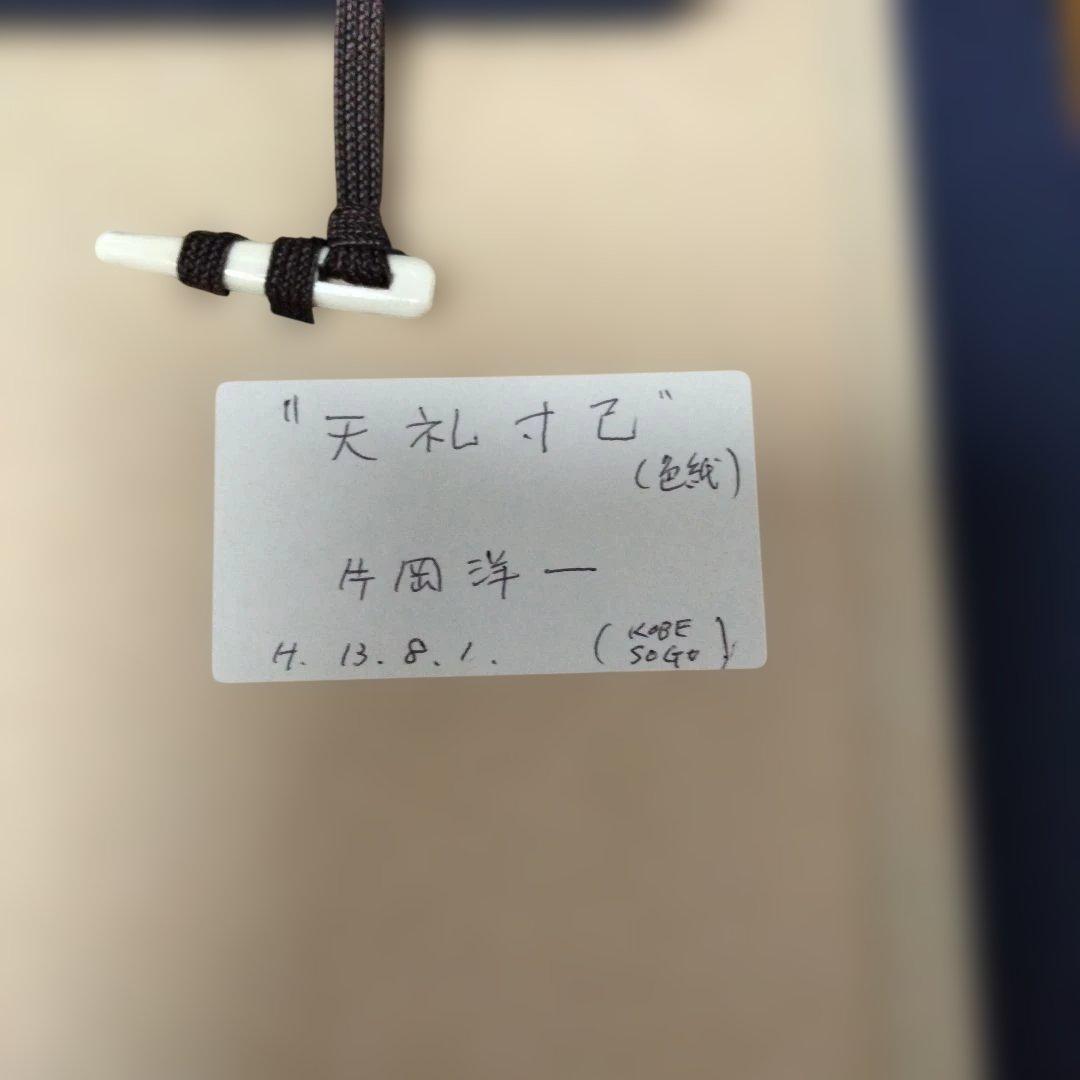 "天礼寸己"
(色紙)
片岡洋一
H.13.8.1. (KOBE SOGO)